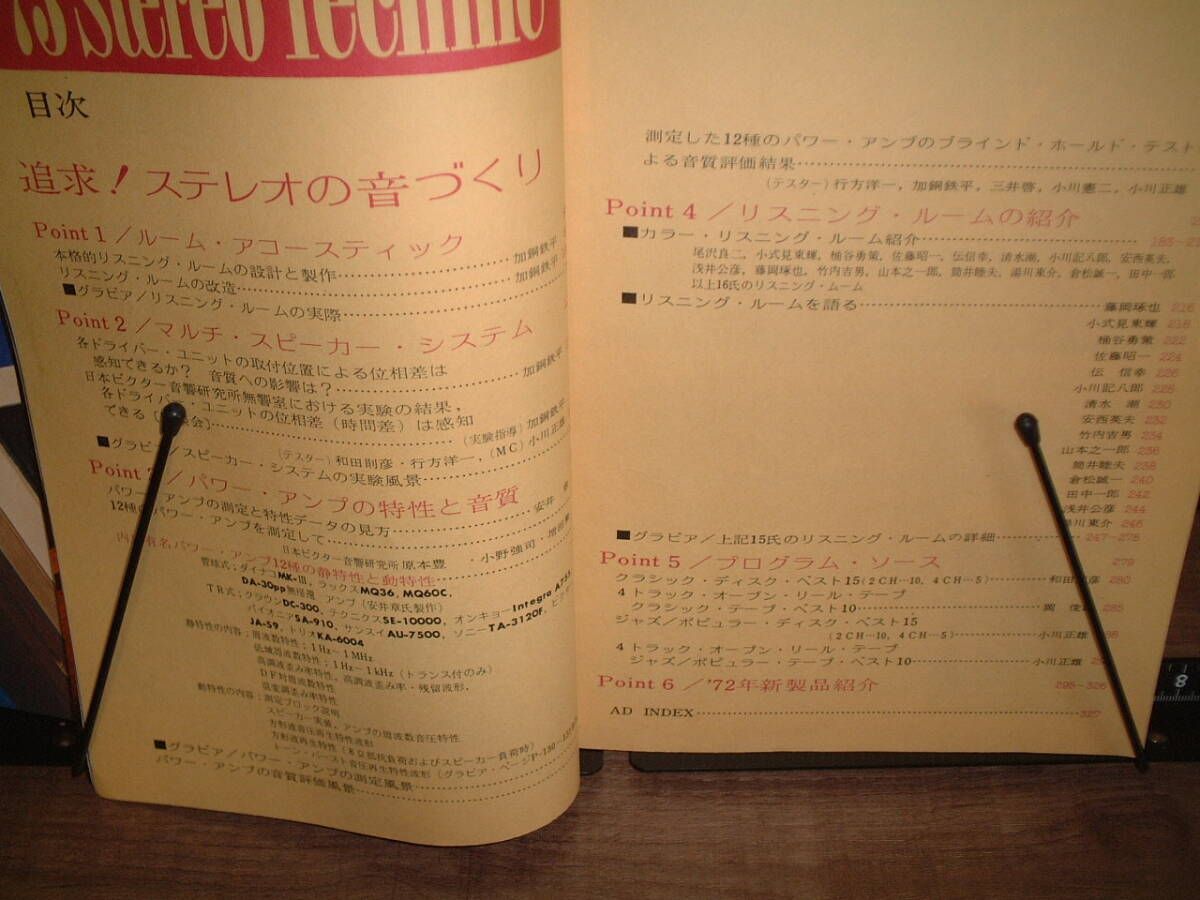 '73 Stereo Technic
目次
追求!ステレオの音づくり
Point 1/ルーム・アコースティック
本格的リスニング・ルームの設計と製作 加銅鉄平
リスニング・ルームの改造 加銅鉄平
■グラビア/リスニング・ルームの実際
Point 2/マルチ・スピーカー・システム
各ドライバー・ユニットの取付位置による位相差は
感知できるか? 音質への影響は? 加銅鉄平
日本ビクター音響研究所無響室における実験の結果,
各ドライバー・ユニットの位相差(時間差)は感知
できる (実験指導)加銅鉄平
(テスター)和田則彦・行方洋一,(MC)小川正雄
■グラビア/スピーカー・システムの実験風景
Point 3/パワー・アンプの特性と音質
パワー・アンプの測定と特性データの見方 安井
12種のパワー・アンプを測定して
日本ビクター音響研究所 原本豊 小野強司
有名パワー・アンプ12種の静特性と動特性
管球式;ダイナコMK-III, ラックスMQ36, MQ60C,
DA-30pp無帰還 アンプ(安井章氏製作)
TR式;クラウンDC-300, テクニクスSE-10000, オンキョーIntegra A755,
パイオニアSA-910, サンスイAU-7500, ソニーTA-3120F, ビクター
JA-S9, トリオKA-6004
静特性の内容;周波数特性;1Hz~1MHz
低域周波数特性;1Hz~1kHz(トランス付のみ)
高調波歪み率特性, 高調波歪み率・残留波形,
DF対周波数特性
混変調歪み率特性
動特性の内容;測定ブロック説明
スピーカー実装, アンプの周波数音圧特性
方形波音圧再生特性波形
方形波再生特性(8Ω抵抗負荷およびスピーカー負荷時)
トーン・バースト音圧再生特性波形(グラビア・ページP-130~
■グラビア/パワー・アンプの測定風景
パワー・アンプの音質評価風景
測定した12種のパワー・アンプのブラインド・ホールド・テスト
よる音質評価結果
(テスター)行方洋一, 加銅鉄平, 三井啓, 小川憲二, 小川正雄
Point 4/リスニング・ルームの紹介
■カラー・リスニング・ルーム紹介 185-2
尾沢良二, 小式見東輝, 桶谷勇策, 佐藤昭一, 伝信幸, 清水潮, 小川記八郎, 安西英夫,
浅井公彦, 藤岡琢也, 竹内吉男, 山本之一郎, 筒井睦夫, 湯川東介, 倉松誠一, 田中一郎
以上16氏のリスニング・ルーム
■リスニング・ルームを語る 藤岡琢也 216
小式見東輝 218
桶谷勇策 222
佐藤昭一 224
伝 信幸 226
小川記八郎 228
清水 潮 230
安西英夫 232
竹内吉男 234
山本之一郎 236
筒井睦夫 238
倉松誠一 240
田中一郎 242
浅井公彦 244
湯川東介 246
■グラビア/上記15氏のリスニング・ルームの詳細 247-278
Point 5/プログラム・ソース 279
クラシック・ディスク・ベスト15(2CH…10, 4CH…5) 和田則彦 280
4トラック・オープン・リール・テープ
クラシック・テープ・ベスト10 岡 俊雄 285
ジャズ/ポピュラー・ディスク・ベスト15
(2CH…10, 4CH…5) 小川正雄
4トラック・オープン・リール・テープ
ジャズ/ポピュラー・テープ・ベスト10 小川正雄
Point 6/'72年新製品紹介 295-326
AD INDEX 327
8